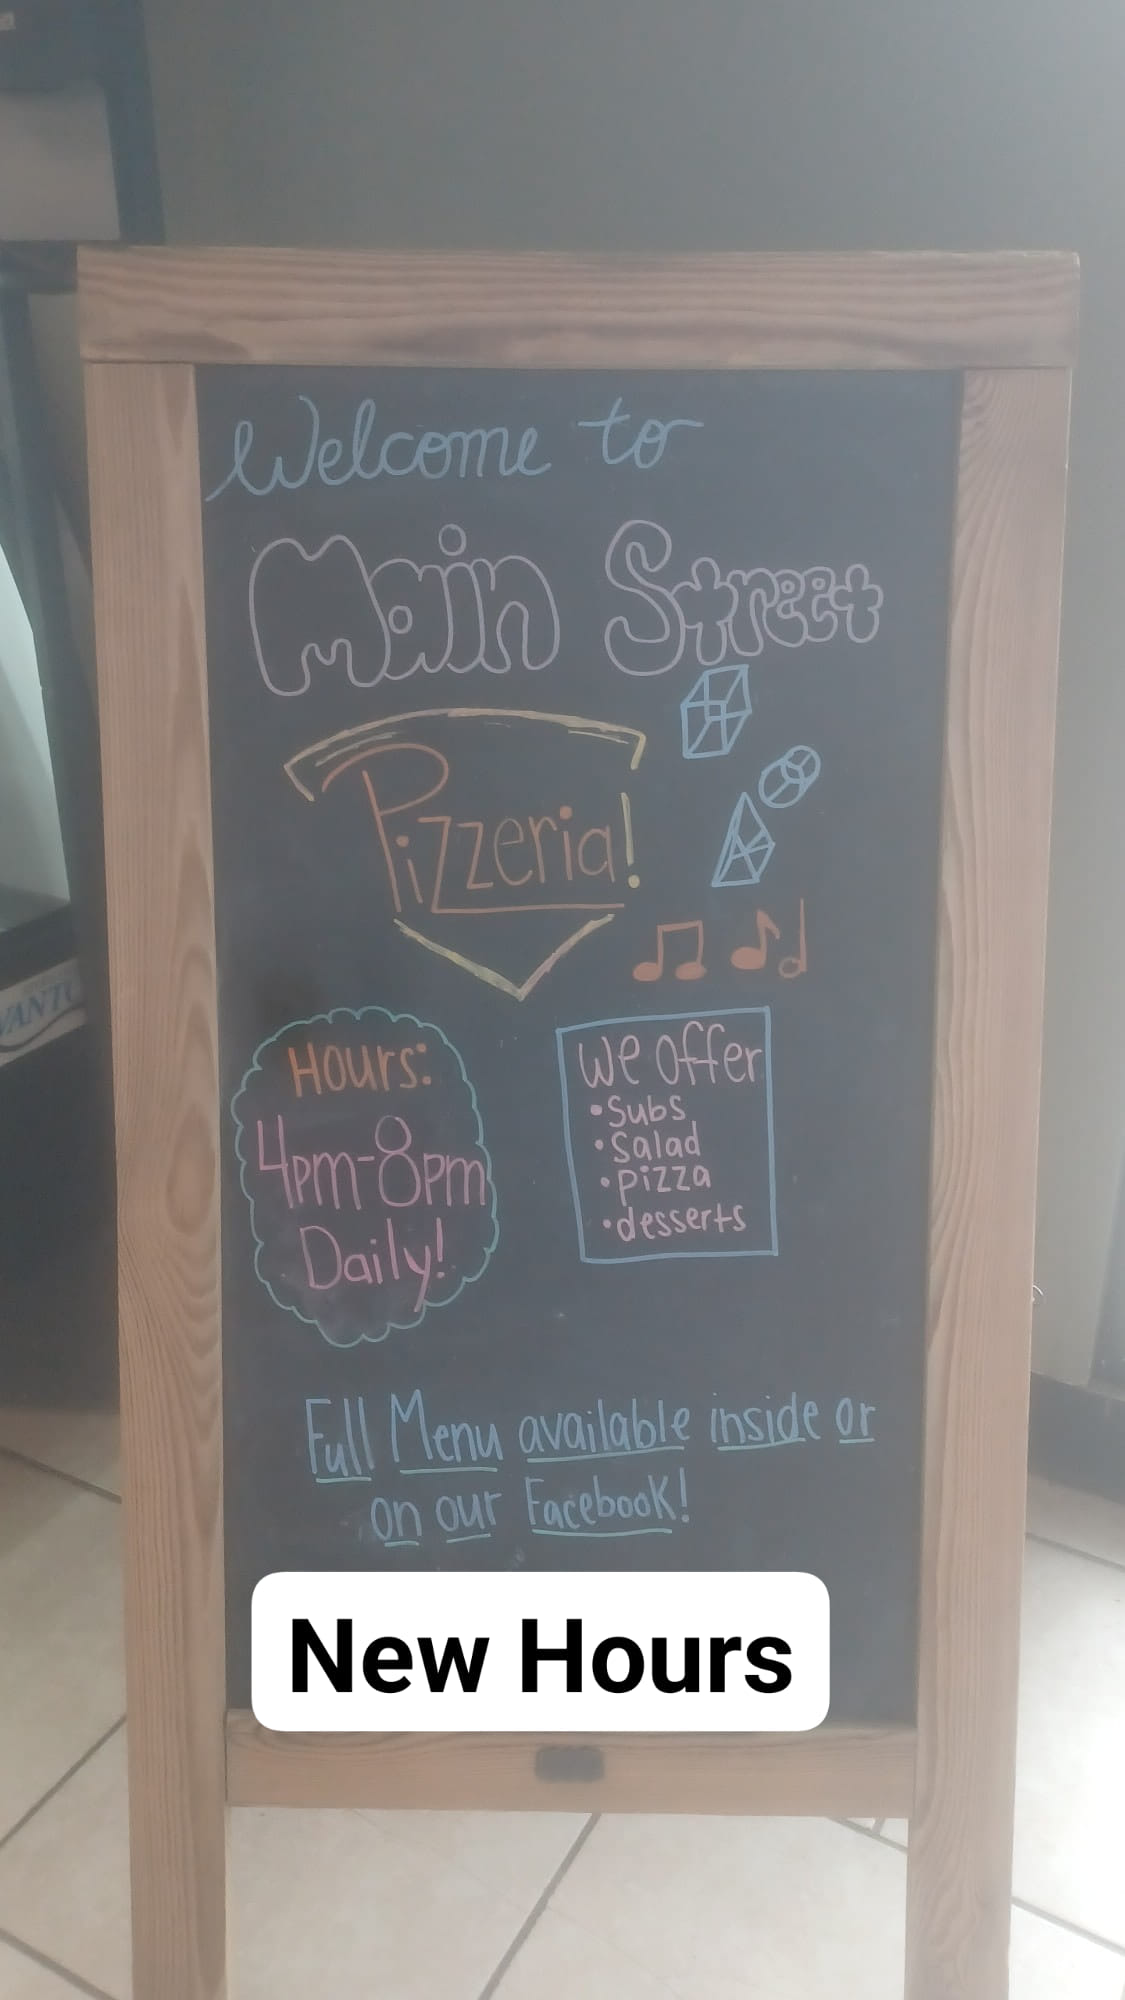 Welcome to
Main Street
Pizzeria!
Hours:
4pm-8pm
Daily!
We Offer
•Subs
•Salad
•pizza
•desserts
Full Menu available inside or
on our Facebook!
New Hours